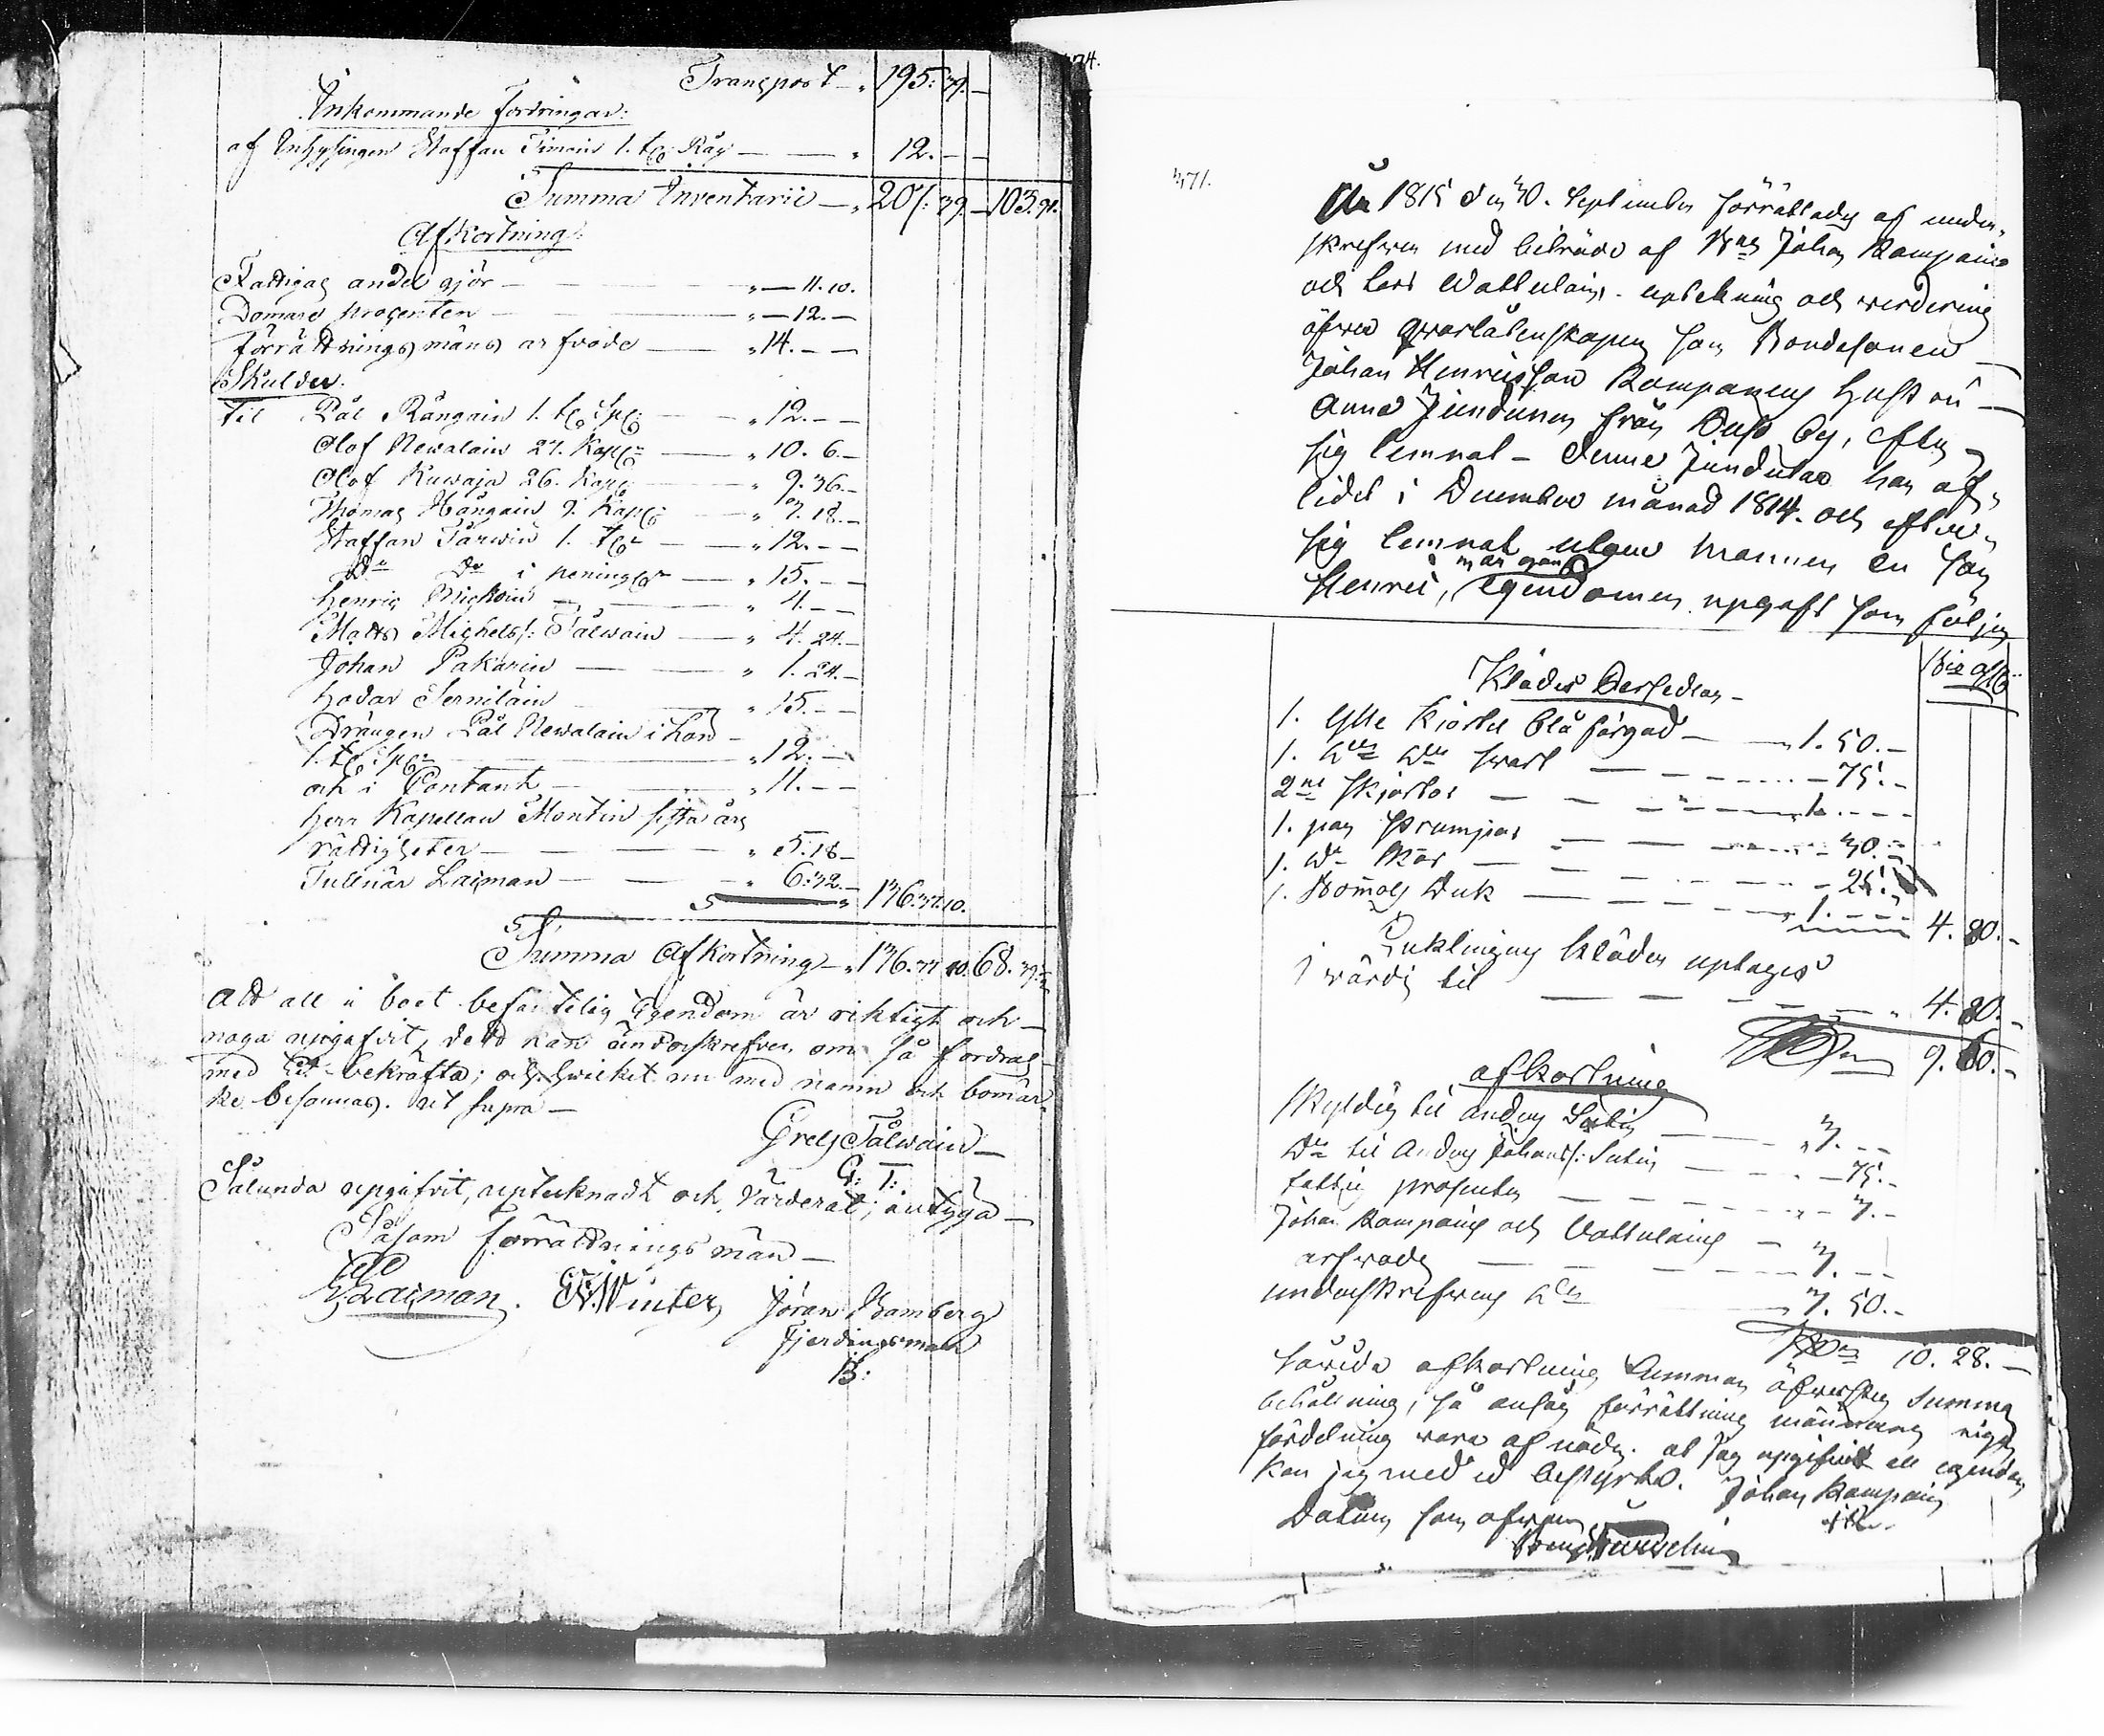 Transport - 195: 39. -
Inkommande fordringar:
af Inhysingen Staffan Timoin 1. t: Råg - 12. - -
Summa Inventarie - 207: 39. - 103. 91.
Afkortning:
Fattigas andel gjör - 11. 10.
Domare procenten - 12. -
förrättnings mäns arfvode - 14. - -
Skulder.
til Pål Rångain 1. t: sp: - 12. - -
Olof Newalain 27. Kapp: - 10. 6. -
Olof Kuwaja 26. Kapp: - 9. 36. -
Thomas Hångain 9. Kapp: - 18. -
Staffan Tarwin 1. t: - 12. - -
Do Do i penning - 15. - -
Henric - 4. - -
Matts Michelss: Tålwain - 4. 24. -
Johan Pakarin - 1. 24. -
Sernilain - 15. - -
Drängen Pål Newalain i
1. t: sp: - 12. -
och i Contant - 11. - -
Herr Kapellan Montin sista års
rättigheter - 5. 18 -
Laiman - 6: 32. -
136. 37. 10.
Summa Afkortning - 136. 37 10. 68.
Att all i boet befintelig Egendom är riktigt och
noga upgifvit, dett kan underskrefven om så fordras
med Ed bekräfta; och hwilket nu med namn och bomär-
ke besannas. ut supra -
Grels Tålwain -
G: T:
Sålunda upgifvit, uptecknadt och värderat; intyga -
Såsom förrättningsmän -
Laiman. Winter Jöran Bamberg
Fjerdingsman
B:
371.
År 1815 den 30. September förrättades af under-
skrefven med biträde af Johan Kompain
och Lars upteckning och verdering
öfver qvarlåtenskapen som Bondesonen
Johan Henricsson Kompanens Hustru
Anna från by, efter
sig lemnat - denne har af-
lidit i December månad 1814. och efter
sig lemnat utom mannen en son
Henric, egendomen upgafs som följer
Kläde Persedlar -
1. ylle kjortel blå färgad - 1. 50. -
1. svart - 75. -
2ne skjortor - 1. - -
1. par strumpor - 30. -
1. Do skor - 25.
1. Bomols Duk - 1. - - 4. 80. -
Enklingens kläder uptages
i värde til - 4. 80. -
9. 60. -
afkortning
skyldig til Anders - 3. - -
Do til Anders Johanss: - 75. -
fattig procenten - 3. -
Johan Kompain och
arfvode - 3. - -
underskrefvens - 3. 50. -
10. 28. -
afkortning Summan öfverstiger Summa
behållning, så ansågs förrättnings männerna ingen
fördelning vara af nöden. at jag upgifvit all egendom
kan jag med ed bestyrka. Johan Kompain
Datum som ofvan